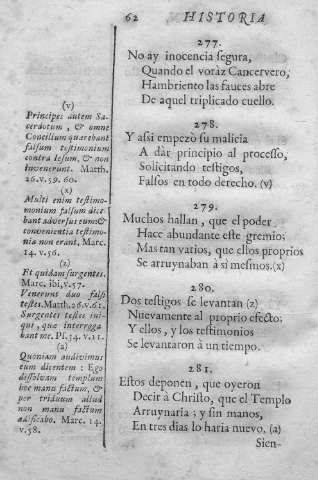 62 HISTORIA
277.
No ay inocencia segura,
Quando el voràz Cancervero,
Hambriento las fauces abre
De aquel triplicado cuello.
278.
Y assi empezò su malicia
A dàr principio al processo,
Solicitando testigos,
Falsos en todo derecho. (v)
279.
Muchos hallan, que el poder
Hace abundante este gremio;
Mas tan varios, que ellos proprios
Se arruynaban à si mesmos. (x)
280.
Dos testigos se levantan (z)
Nuevamente al proprio efecto;
Y ellos, y los testimonios
Se levantaron à un tiempo.
281.
Estos deponen, que oyeron
Decir à Christo, que el Templo
Arruynaria; y sin manos,
En tres dias lo haria nuevo. (a)
Sien-
(v)
Principes autem Sa-
cerdotum, & omne
Concilium quærebant
falsum testimonium
contra Iesum, & non
invenerunt. Matth.
26. v. 59. 60.
(x)
Multi enim testimo-
nium falsum dice-
bant adversus eum &
convenientia testimo-
nia non erant. Marc.
14. v. 56.
(z)
Et quidam surgentes.
Marc. ibi, v. 57.
Venerunt duo falsi
testes. Matth. 26. v. 61.
Surgentes testes ini-
qui, que interroga
bant me. Ps. 34. v. 11.
(a)
Quoniam audivimus
eum dicentem: Ego
dissolvam templum
hoc manu factum, &
per triduum aliud
non manu factum
ædificabo. Marc. 14.
v. 58.